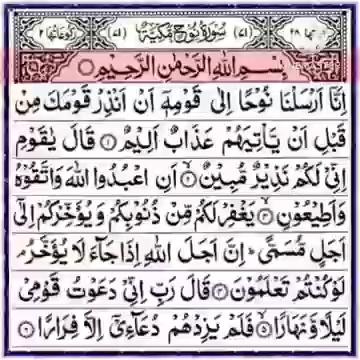 سُوْرَةُ نُوْحٍ مَّكِّيَّةٌ
بِسْمِ اللهِ الرَّحْمٰنِ الرَّحِيْمِ
اِنَّاۤ اَرْسَلْنَا نُوْحًا اِلٰى قَوْمِهٖۤ اَنْ اَنْذِرْ قَوْمَكَ مِنْ
قَبْلِ اَنْ يَّاْتِيَهُمْ عَذَابٌ اَلِيْمٌ ۝۱ قَالَ يٰقَوْمِ
اِنِّيْ لَكُمْ نَذِيْرٌ مُّبِيْنٌ ۝۲ اَنِ اعْبُدُوا اللهَ وَاتَّقُوْهُ
وَاَطِيْعُوْنِ ۝۳ يَغْفِرْ لَكُمْ مِّنْ ذُنُوْبِكُمْ وَيُؤَخِّرْكُمْ اِلٰۤى
اَجَلٍ مُّسَمًّى ؕ اِنَّ اَجَلَ اللهِ اِذَا جَآءَ لَا يُؤَخَّرُ ۘ
لَوْ كُنْتُمْ تَعْلَمُوْنَ ۝۴ قَالَ رَبِّ اِنِّيْ دَعَوْتُ قَوْمِيْ
لَيْلًا وَّنَهَارًا ۝۵ فَلَمْ يَزِدْهُمْ دُعَآءِيْۤ اِلَّا فِرَارًا ۝۶